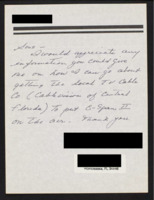 Sirs -
I would appreciate any
information you could give
me on how I can go about
getting the local TV Cable
Co (Cablevision of Central
Florida) to put C-Span II
on the air. Thank you